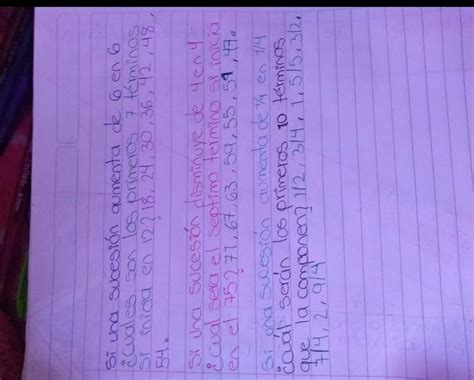 Si una sucesión aumenta de 6 en 6
¿cuáles son los primeros 7 términos
si inicia en 12? 18, 24, 30, 36, 42, 48,
54.
Si una sucesión disminuye de 4 en 4
¿cual sera el septimo termino si inicia
en el 75? 71, 67, 63, 59, 55, 51, 47.
Si una sucesión aumenta de 1/4 en 1/4
¿cuál serán los primeros 10 términos
que la componen? 1/2, 3/4, 1, 5/5, 3/2,
7/4, 2, 9/4